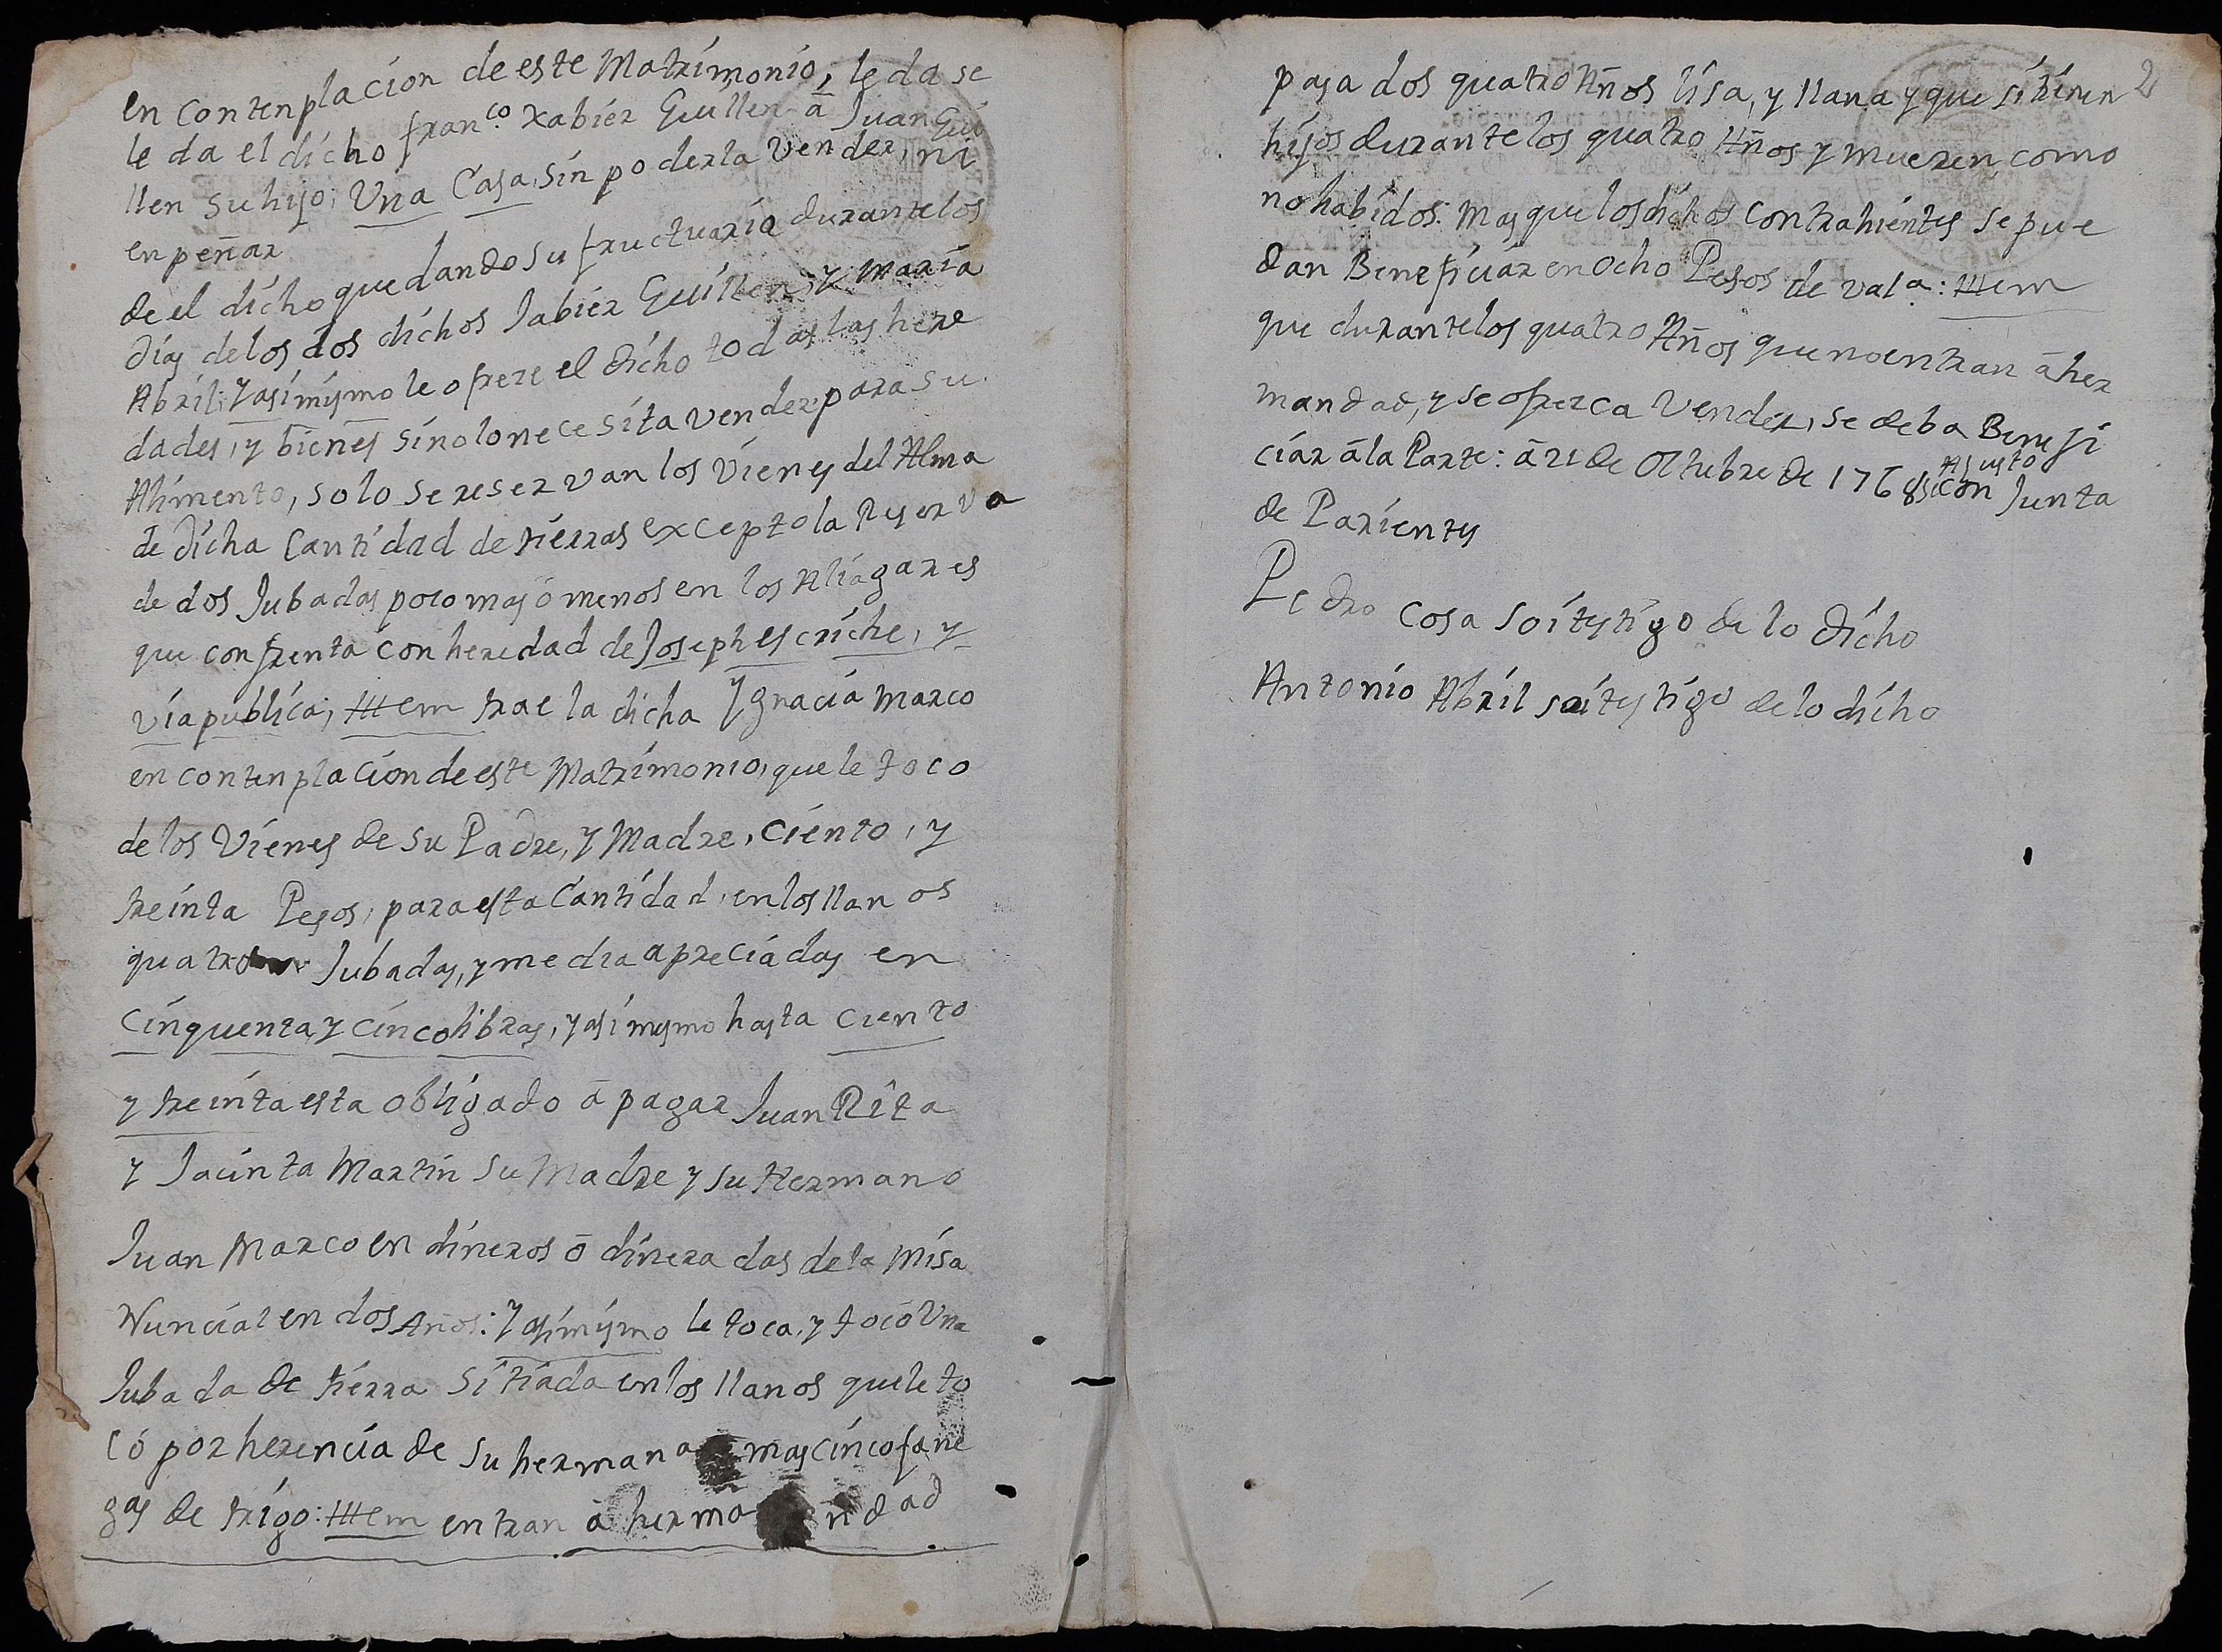 en contenplacion de este Matrimonio, le da se
le da el dicho fran.co Xabier Guillen â Juan Gui
llen su hijo; Vna Casa, sin poderla vender, ni
enpeñar
de el dicho quedando sufructuario durantelos
dias delos dos dichos Jabier Guillen, y Maria
Abril; Y asimismo le ofreze el dicho todas las here
dades, y bienes sinolonecesita vender para su
Alimento, solo se reservan los Vienes del Alma
de dicha Cantidad de tierras excepto la Reserva
de dos Jubadas poco mas ô menos en los Aliagares
que confrenta con heredad de Joseph escriche, y
via publica; Ittem trae la dicha Ygnacia Marco
en contenplacion de este Matrimonio, que le toco
de los Vienes de su Padre, y Madre, Ciento, y
treinta Pesos, para esta Cantidad, en los llanos
quatro Jubadas, y media apreciadas en
Cinquenta, y cinco libras, y asimismo hasta ciento
y treinta esta obligado â pagar Juan Rita
y Jacinta Martin su Madre y su Hermano
Juan Marco en dineros ô dineradas de la Misa
Nuncial en dos Años: Y asimismo le toca, y tocô Vna
Jubada de tierra sitiada en los llanos que le to
cô por herencia de su hermana mas cinco fane
gas de trigo: Ittem entran â herma ndad
2
pasados quatro Años lisa, y llana y que si tienen
hijos durante los quatro Años y mueren, como
no habidos: mas que los dichos Contrahientes se pue
dan Beneficiar en Ocho Pesos de val.a: Ittem
que durantelos quatro Años que no entran â her
mandad, y se ofrezca Vender, se deba Benefi
ciar â la Parte: â 21 de Octubre de 1768 Agusto con Junta
de Parientes
Pedro Cosa soi testigo de lo dicho
Antonio Abril soi testigo de lo dicho